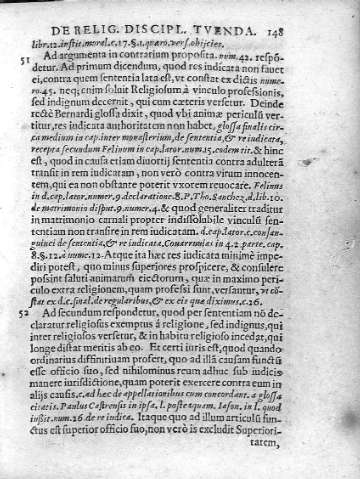 DE RELIG. DISCIPL. TVENDA. 148
libr. 12. instit. moral. c. 17. §. 1. quæro, vers. obijcies.
51 Ad argumenta in contrarium proposita. num. 42. respõ-
detur. Ad primum dicendum, quod res iudicata non fauet
ei, contra quem sententia lata est, vt constat ex dictis nume-
ro. 45. neq; enim soluit Religiosum à vinculo professionis,
sed indignum decernit, qui cum cæteris versetur. Deinde
rectè Bernardi glossa dixit, quod vbi animæ periculũ ver-
titur, res iudicata authoritatem non habet, glossa finalis cir-
ca medium in cap. inter monasterium, de sententia, & re iudicata,
recepta secundum Felinum in cap. lator. num. 15. eodem tit. & hinc
est, quod in causa etiam diuortij sententia contra adulterã
transit in rem iudicatam, non verò contra virum innocen-
tem, qui ea non obstante poterit vxorem reuocare. Felinus
in d. cap. lator, numer. 9. declaratione. 8. P. Tho. Sanchez, d. lib. 10.
de matrimonio disput. 9. numer. 4. & quod generaliter traditur
in matrimonio carnali propter indissolubile vinculũ sen-
tentiam non transire in rem iudicatam. d. cap. lator. c. consan-
guinei de sententia, & re iudicata. Couarruuias in 4. 2. parte. cap.
8. §. 12. à nume. 12. Atque ita hæc res iudicata minimè impe-
diri potest, quo minus superiores prospicere, & consulere
possint saluti animarum eiectorum, quæ in maximo peri-
culo extra religionem, quam professi sunt, versantur, vt cõ-
stat ex d. c. final. de regularibus, & ex eis quæ diximus. c. 26.
52 Ad secundum respondetur, quod per sententiam nõ de-
claratur religiosus exemptus à religione, sed indignus, qui
inter religiosos versetur, & in habitu religioso incedat, qui
longe distat meritis ab eo. Et certi iuris est, quod quando
ordinarius diffinitiuam profert, quo ad illã causam functũ
esse officio suo, sed nihilominus reum adhuc sub iudicis
manere iurisdictione, quam poterit exercere contra eum in
alijs causis, c. ad hæc de appellationibus cum concordant. a glossa
citatis. Paulus Castrensis in ipsa. l. post equam. Iason, in l. quod
iussit. num. 26. de re iudica. Itaque quo ad illum articulũ fun-
ctus est superior officio suo, non verò is excludit Superiori-
tatem,